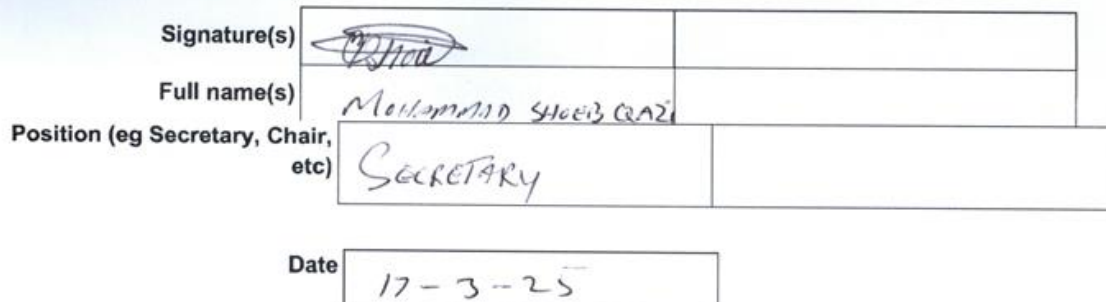 Signature(s)
Full name(s) MOHAMMAD SHOEB QAZI
Position (eg Secretary, Chair,
etc) SECRETARY
Date 17-3-25